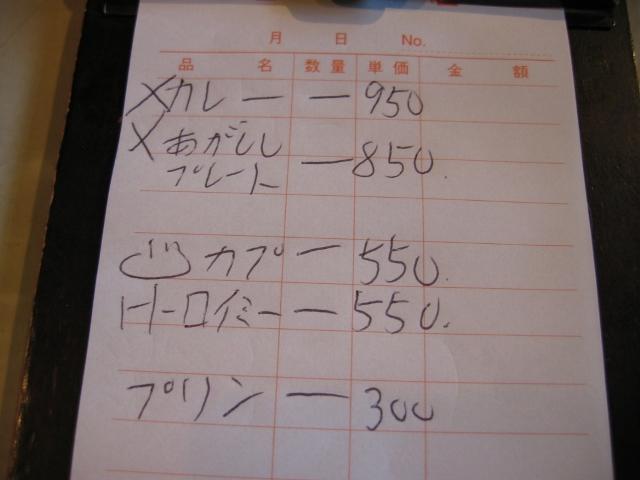 月 日 No.
品 名 数量 単価 金 額
×カレー 一 950
×あがしし
プレート 一 850.
カプ 一 550.
H-ロイミー 一 550.
プリン 一 300